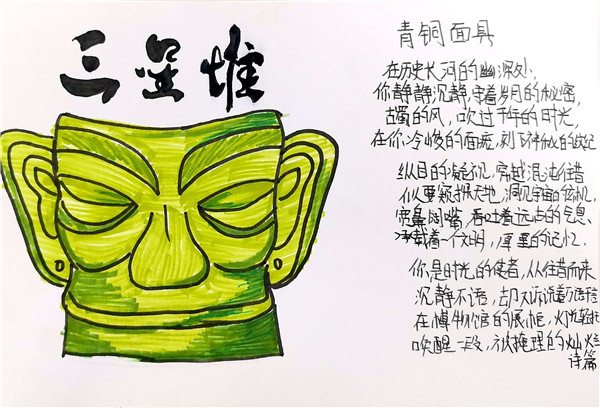 三星堆
青铜面具
在历史长河的幽深处,
你静静沉静,守着岁月的秘密,
古蜀的风,吹过千年的时光,
在你冷峻的面庞,刻下神秘的
纵目的凝视,穿越混沌往昔
似要窥探天地,洞见宇宙的玄机,
宽鼻阔嘴,吞吐着远古的气息,
承载着一个文明,厚重的记忆.
你是时光的使者,从往昔而来
沉静不语,却
在博物馆的展柜,灯光轻
唤醒一段,被掩埋的灿烂
诗篇